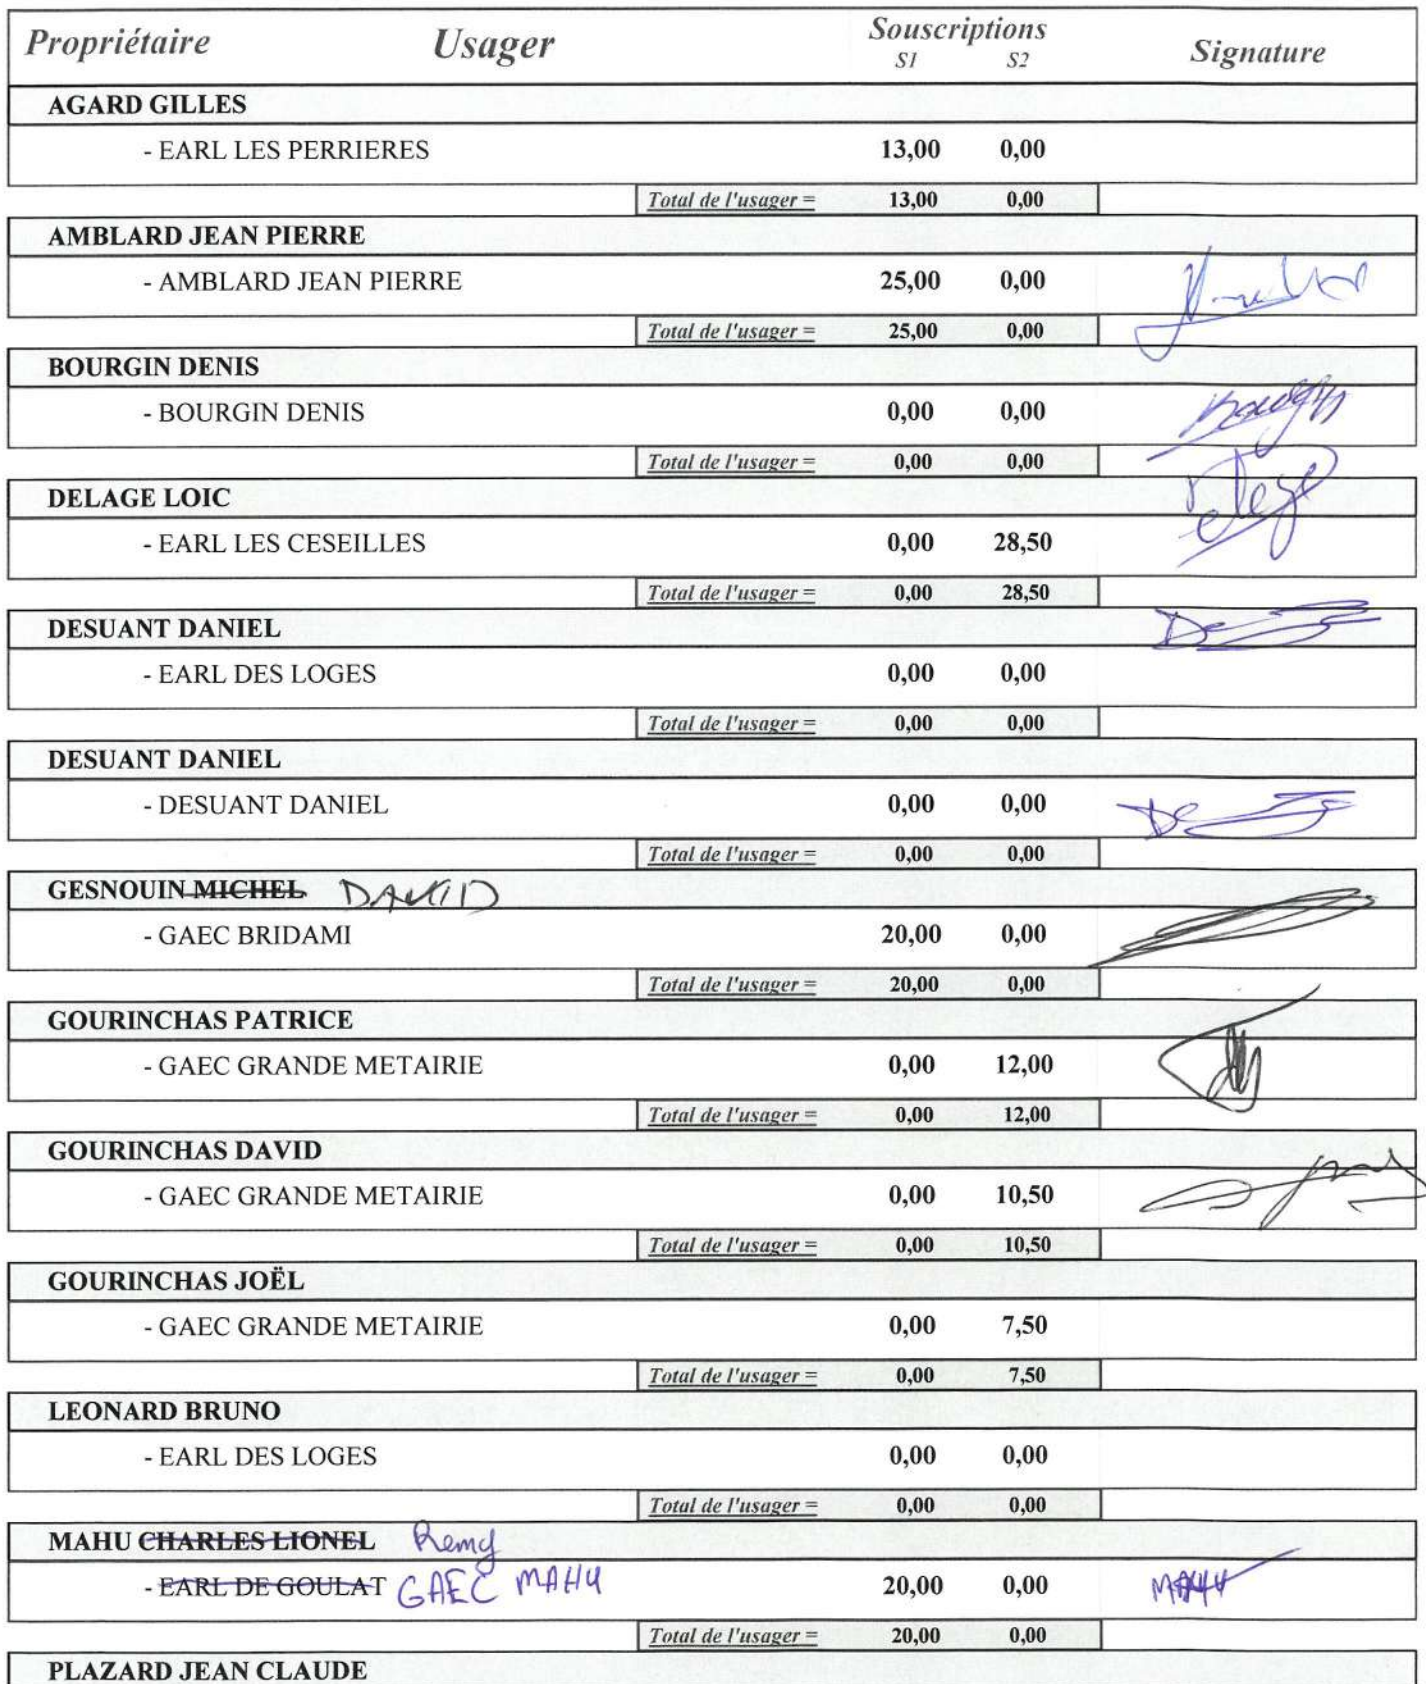 Propriétaire Usager Souscriptions Signature
S1 S2
AGARD GILLES
- EARL LES PERRIERES 13,00 0,00
Total de l'usager = 13,00 0,00
AMBLARD JEAN PIERRE
- AMBLARD JEAN PIERRE 25,00 0,00
Total de l'usager = 25,00 0,00
BOURGIN DENIS
- BOURGIN DENIS 0,00 0,00 Bourgin
Total de l'usager = 0,00 0,00
DELAGE LOIC
- EARL LES CESEILLES 0,00 28,50
Total de l'usager = 0,00 28,50
DESUANT DANIEL
- EARL DES LOGES 0,00 0,00
Total de l'usager = 0,00 0,00
DESUANT DANIEL
- DESUANT DANIEL 0,00 0,00
Total de l'usager = 0,00 0,00
GESNOUIN MICHEL DAVID
- GAEC BRIDAMI 20,00 0,00
Total de l'usager = 20,00 0,00
GOURINCHAS PATRICE
- GAEC GRANDE METAIRIE 0,00 12,00
Total de l'usager = 0,00 12,00
GOURINCHAS DAVID
- GAEC GRANDE METAIRIE 0,00 10,50
Total de l'usager = 0,00 10,50
GOURINCHAS JOËL
- GAEC GRANDE METAIRIE 0,00 7,50
Total de l'usager = 0,00 7,50
LEONARD BRUNO
- EARL DES LOGES 0,00 0,00
Total de l'usager = 0,00 0,00
MAHU CHARLES LIONEL Remy
- EARL DE GOULAT GAEC MAHU 20,00 0,00 MAHU
Total de l'usager = 20,00 0,00
PLAZARD JEAN CLAUDE